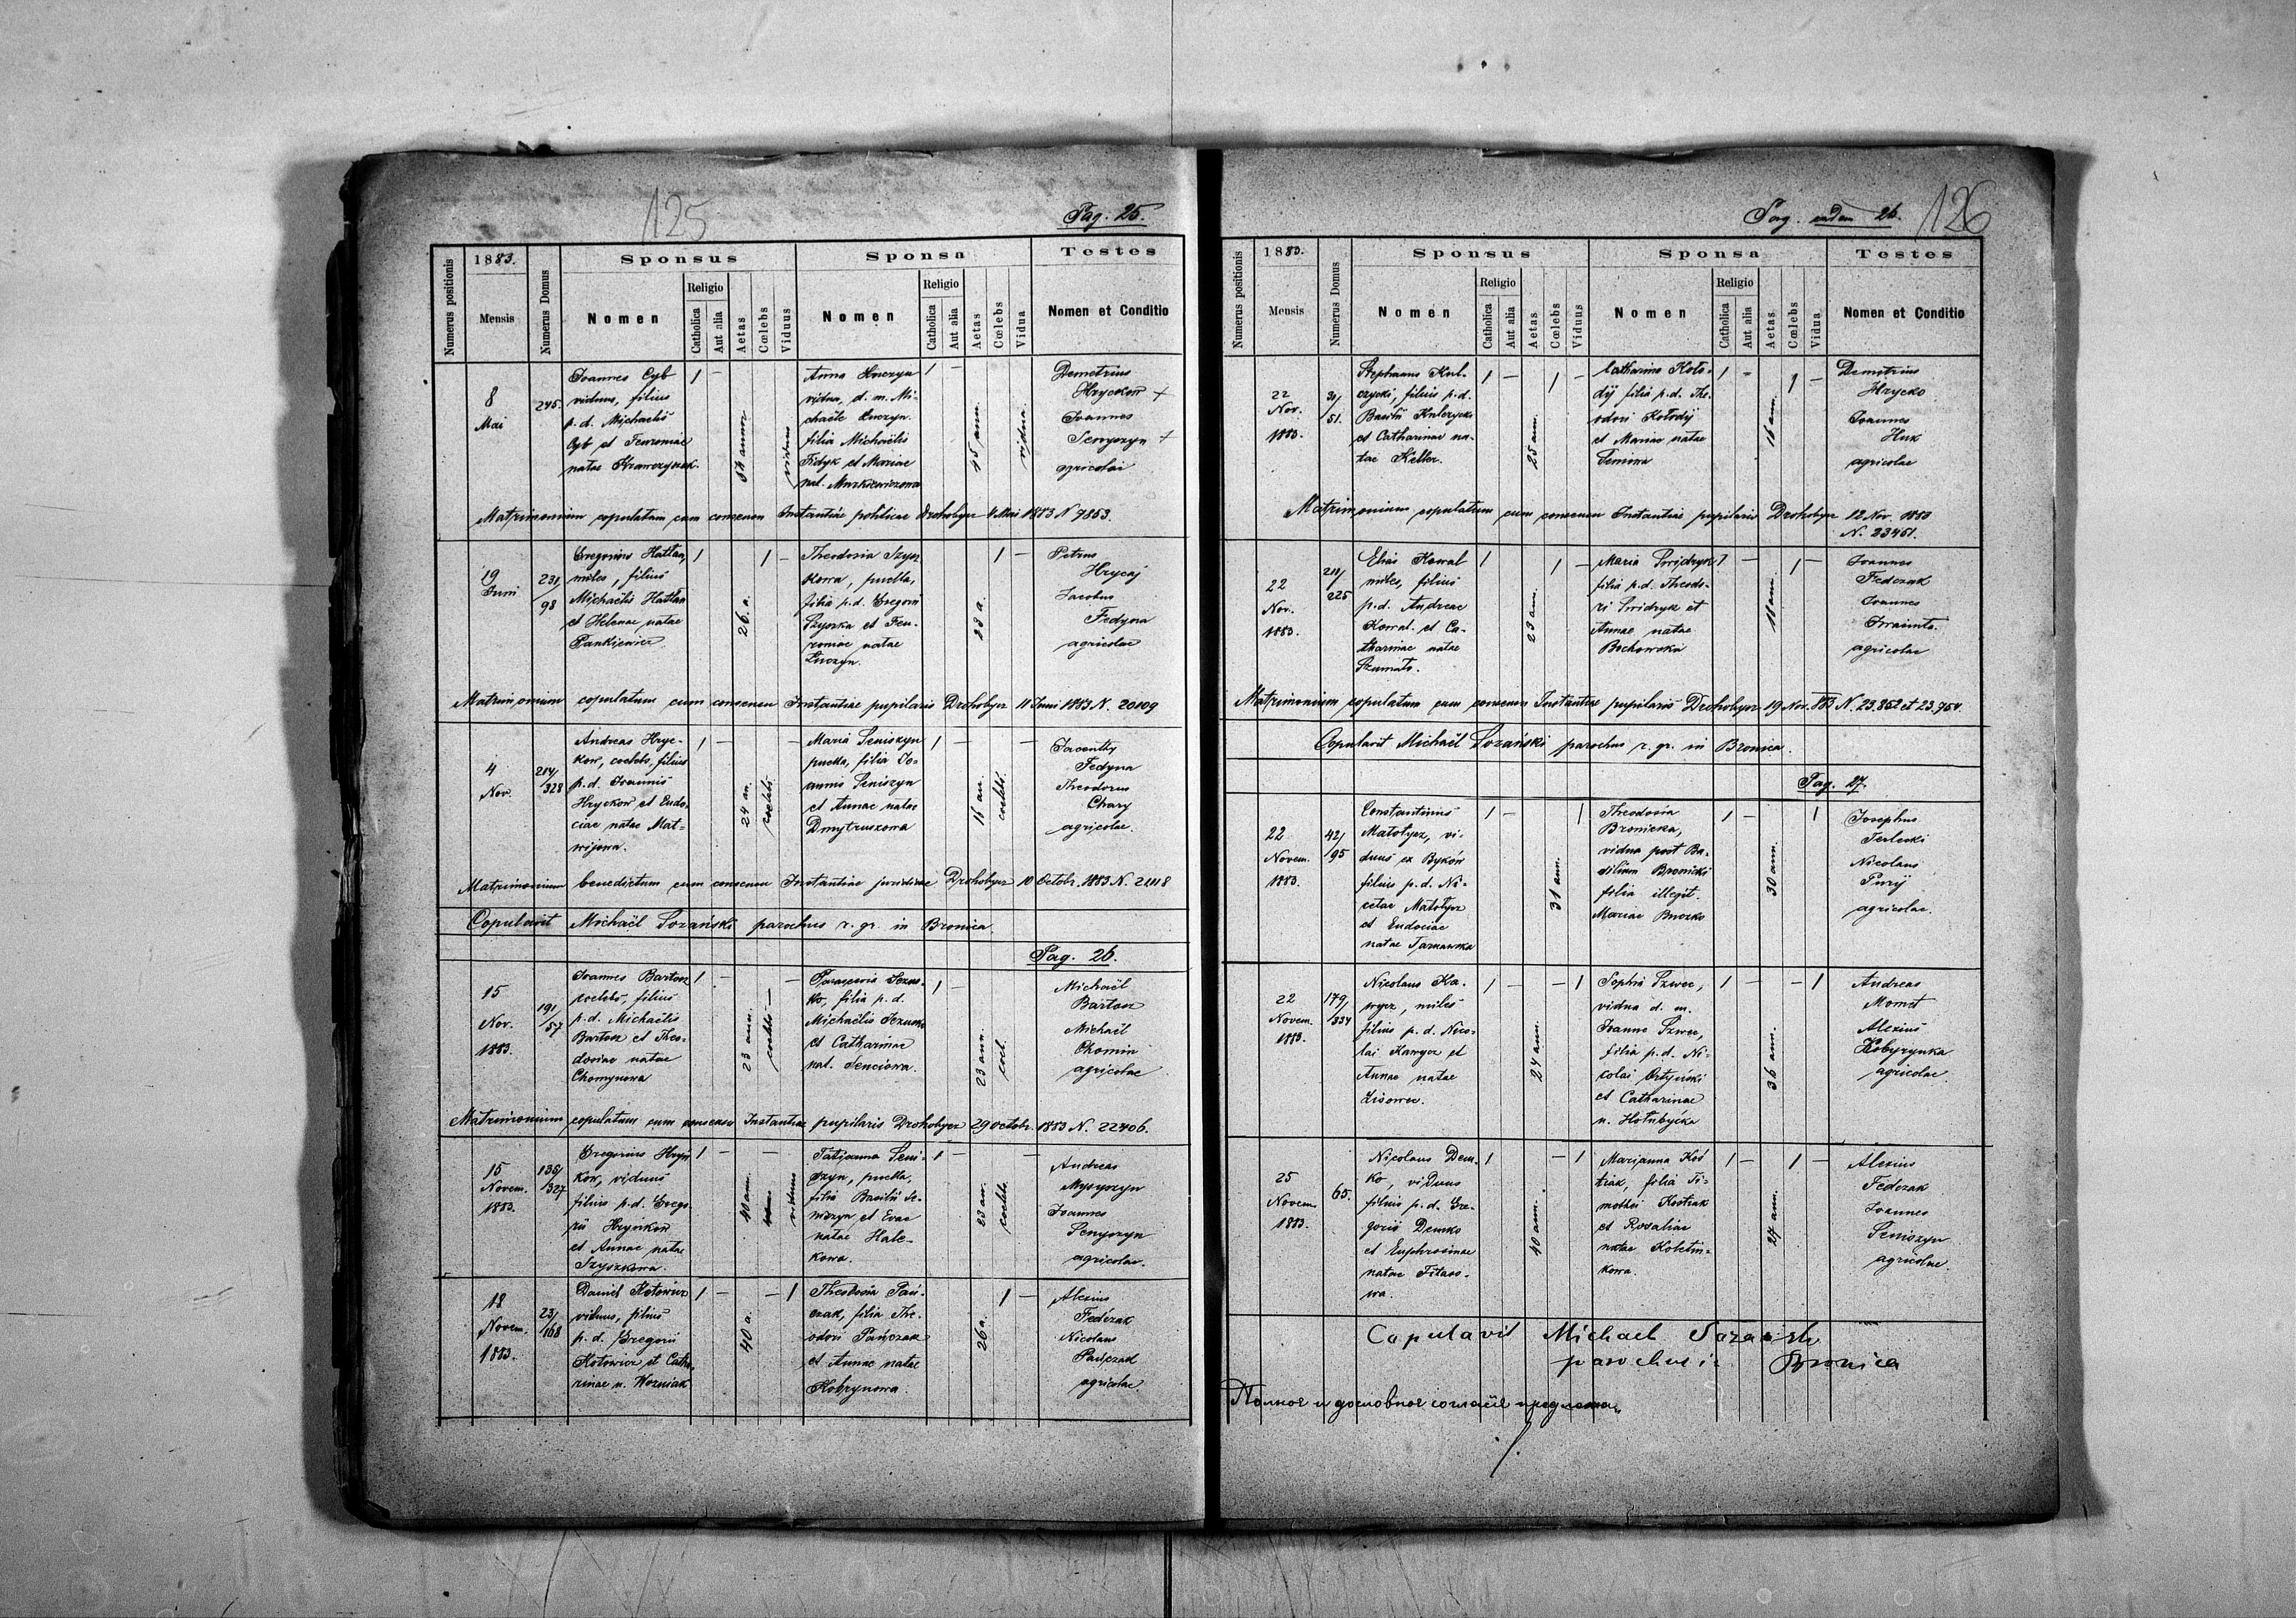 125
Pag. 25.
Numerus positionis
1883.
Mensis
Numerus Domus
Sponsus
Nomen
Religio
Catholica
Aut alia
Aetas
Cœlebs
Viduus
Sponsa
Nomen
Religio
Catholica
Aut alia
Aetas
Cœlebs
Vidua
Testes
Nomen et Conditio
8
Mai
245.
Joannes Cyb
viduus, filius
p. d. Michaelis
Cyb et
natae Krawczyszak.
1 -
annor
viduus
Anna
vidua, d. m. Mi-
chaële
filia Michaëlis
Fidyk et Mariae
nat.
1 -
45 ann.
vidua.
Demetrius
Hryckow +
Joannes
Senyszyn +
agricolae
Matrimonium copulatum cum consensu Instantiae politicae Drohobycz 4 Mai 1883 N 7853.
19
Juni
231/
98
Gregorius Hatlan,
miles, filius
Michaëlis Hatlan
et Helenae natae
Pankiewicz.
1
26. a.
1 -
Theodosia Szysz
kowa, puella,
filia p. d. Gregorii
Szyszka et Feu-
roniae natae
Łuczyn.
23 a.
1 -
Petrus
Hrycaj
Jacobus
Fedyna
agricolae
Matrimonium copulatum cum consensu Instantiae pupilaris Drohobycz 11 Juni 1883 N. 20109
4
Nov.
214/
328
Andreas Hryc-
kow, coelebs, filius
p. d. Joannis
Hryckow et Eudo-
ciae natae Mat-
wijowa.
1 -
24 an.
coelebs
-
Maria Seniszyn
puella, filia Jo-
annis Seniszyn
et Annae natae
Dmytruszowa
1 -
an.
coelebs.
-
Fedyna
Theodorus
Chary
agricolae.
Matrimonium benedictum cum consensu Instantiae juridicae Drohobycz 10 Octobr. 1883 N. 21118
Copulavit Michaël Sozański parochus r. gr. in Bronica.
Pag. 26.
15
Nov.
1883.
191/
57
Joannes Bartosz
coelebs, filius
p. d. Michaëlis
Bartosz et Theo-
dosiae natae
Chomynowa
1 -
23 ann.
coelebs -
-
Parascevia
ko, filia p. d.
Michaëlis
et Catharinae
nat. Senciowa.
1 -
23 ann.
coel.
Michaël
Bartosz
Michaël
Chomin
agricolae
Matrimonium copulatum cum consensu Instantiae pupilaris Drohobycz 29 octobr. 1883 N. 22406.
15
Novem.
1883.
136/
327
Gregorius Hryń
kow, viduus
filius p. d. Grego
rii Hrynkow
et Annae natae
Szyszkowa.
1 - -
40 ann.
viduus
Tatjanna Seni-
szyn, puella,
filia Basilii Se-
niszyn et Evae
natae Hale-
kowa.
1 -
23 an.
coelebs.
-
Andreas
Joannes
Senyszyn
agricolae.
18
Novem.
1883.
23/
168
Daniel Kotowicz
viduus, filius
p. d. Gregorii
Kotowicz et Catha-
rinae n. Wozniak
1 -
40 a.
- 1
Theodosia Pań-
czak, filia The-
odori Pańczak
et Annae natae
Kobrynowa.
26 a.
1 -
Alexius
Fedczak
Nicolaus
Pańczak
agricolae.
126
Pag. eadem 26.
Numerus positionis
1883.
Mensis
Numerus Domus
Sponsus
Nomen
Religio
Catholica
Aut alia
Aetas
Cœlebs
Viduus
Sponsa
Nomen
Religio
Catholica
Aut alia
Aetas
Cœlebs
Vidua
Testes
Nomen et Conditio
22
Nov.
1883.
31/
51.
Stephanus Kul-
czycki, filius p. d.
Basilii Kulczycki
et Catharinae na-
tae Keller.
1 -
25 ann.
1 -
Catharina Koło-
dij filia p. d. The-
odori Kołodij
et Mariae natae
1 -
16 ann.
1 -
Demetrius
Hrycko
Joannes
Huk
agricolae
Matrimonium copulatum cum consensu Instantiae pupilaris Drohobycz 12 Nov. 1883
N. 23461.
22
Nov.
1883.
211/
225
Elias Kowal
miles, filius
p. d. Andreae
Kowal. et Ca-
tharinae natae
Szumato.
1
23 ann.
1 -
Maria Swidryk
filia p. d. Theodo-
ri Swidryk et
Annae natae
Bochowska
1 -
18 ann.
1 -
Joannes
Fedczak
Joannes
agricolae
Matrimonium copulatum cum consensu Instantiae pupilaris Drohobycz 19 Nov. 883 N. 23.852 et 23.754.
Copulavit Michaël Sozański parochus r. gr. in Bronica.
Pag. 27.
22
Novem.
1883.
42/
195
Constantinus
Matołycz, vi-
duus ex Byków
filius p. d. Ni-
cetae Matołycz
et Eudociae
natae Tarnawska
1 -
31 ann.
1
Theodosia
Bronicka,
vidua post Ba-
silium Bronicki
filia illegit.
Mariae
1 -
30 ann.
1
Josephus
Terlecki
Nicolaus
Puryj
agricolae.
22
Novem.
1883.
179/
334
Nicolaus Ka-
wycz, miles
filius p. d. Nico-
lai Kawycz et
Annae natae
Lisowec.
1 -
24 ann.
- 1
Sophia Szwec,
vidua d. m.
Joanne Szwec,
filia p. d. Ni-
colai Ortyński
et Catharinae
n. Hołubyćka
1 -
36 ann.
- 1
Andreas
Momot
Alexius
Kobyrynka
agricolae.
25
Novem.
1883.
65.
Nicolaus Dem-
ko, viduus
filius p. d. Gre-
gorii Demko
et Euphrosinae
natae Fitaso-
wa.
1
40 ann.
- 1
Marjanna Kos
tiak, filia Ti-
mothei Kostiak
et Rosaliae
natae Koletin-
kowa.
1 -
24 ann.
1 -
Alexius
Fedczak
Joannes
Seniszyn
agricolae.
Copulavit Michael Sozański
parochus in Bronica
Полное и дословное согласіе